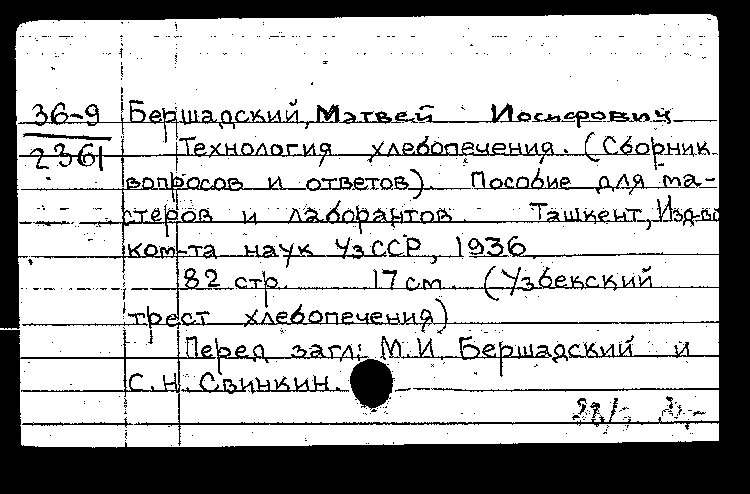 36-9 Бершадский, Матвей Иосифович
2361 Технология хлебопечения. (Сборник
вопросов и ответов). Пособие для ма-
стеров и лаборантов. Ташкент, Изд-во
ком-та наук УзССР, 1936.
82 стр. 17 см. (Узбекский
трест хлебопечения)
Перед загл: М.И. Бершадский и
С.Н. Свинкин.